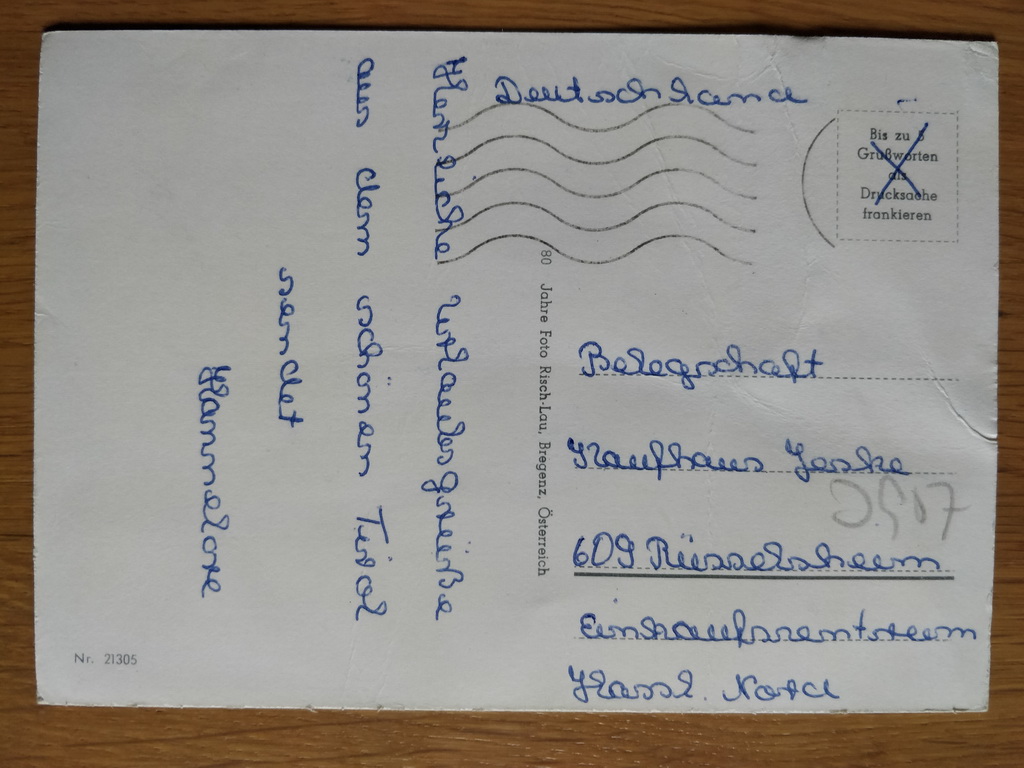 Deutschland
Bis zu 5
Grußworten
als
Drucksache
frankieren
Herzliche Urlaubsgrüße
aus dem schönen Tirol
sendet
Hannelore
80 Jahre Foto Risch-Lau, Bregenz, Österreich
Belegschaft
Kaufhaus Jeske
609 Rüsselsheim
Einkaufszentrum
Hassl. Nord
Nr. 21305